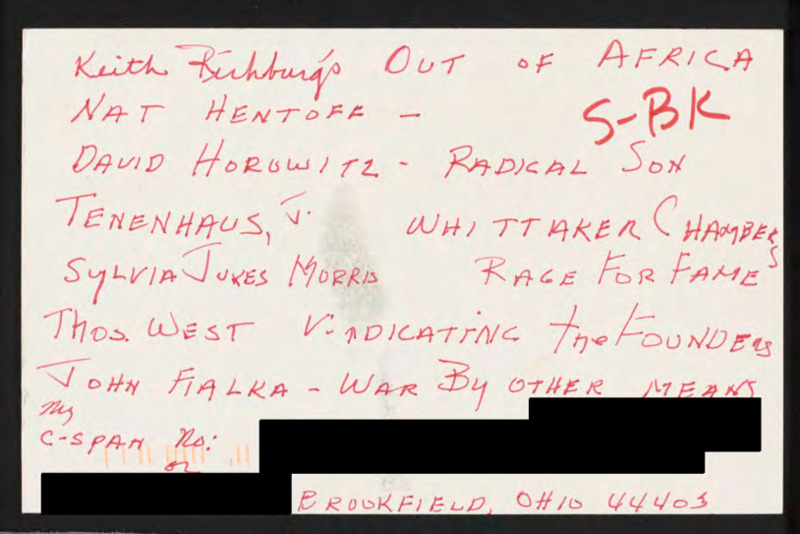 Keith Richburg's OUT OF AFRICA
NAT HENTOFF –
S-BK
DAVID HOROWITZ - RADICAL SON
TENENHAUS, J. WHITTAKER CHAMBERS
SYLVIA JUKES MORRIS RAGE FOR FAME
THOS. WEST VINDICATING the FOUNDERS
JOHN FIALKA - WAR BY OTHER MEANS
My
C-SPAN No:
or
BROOKFIELD, OHIO 44403